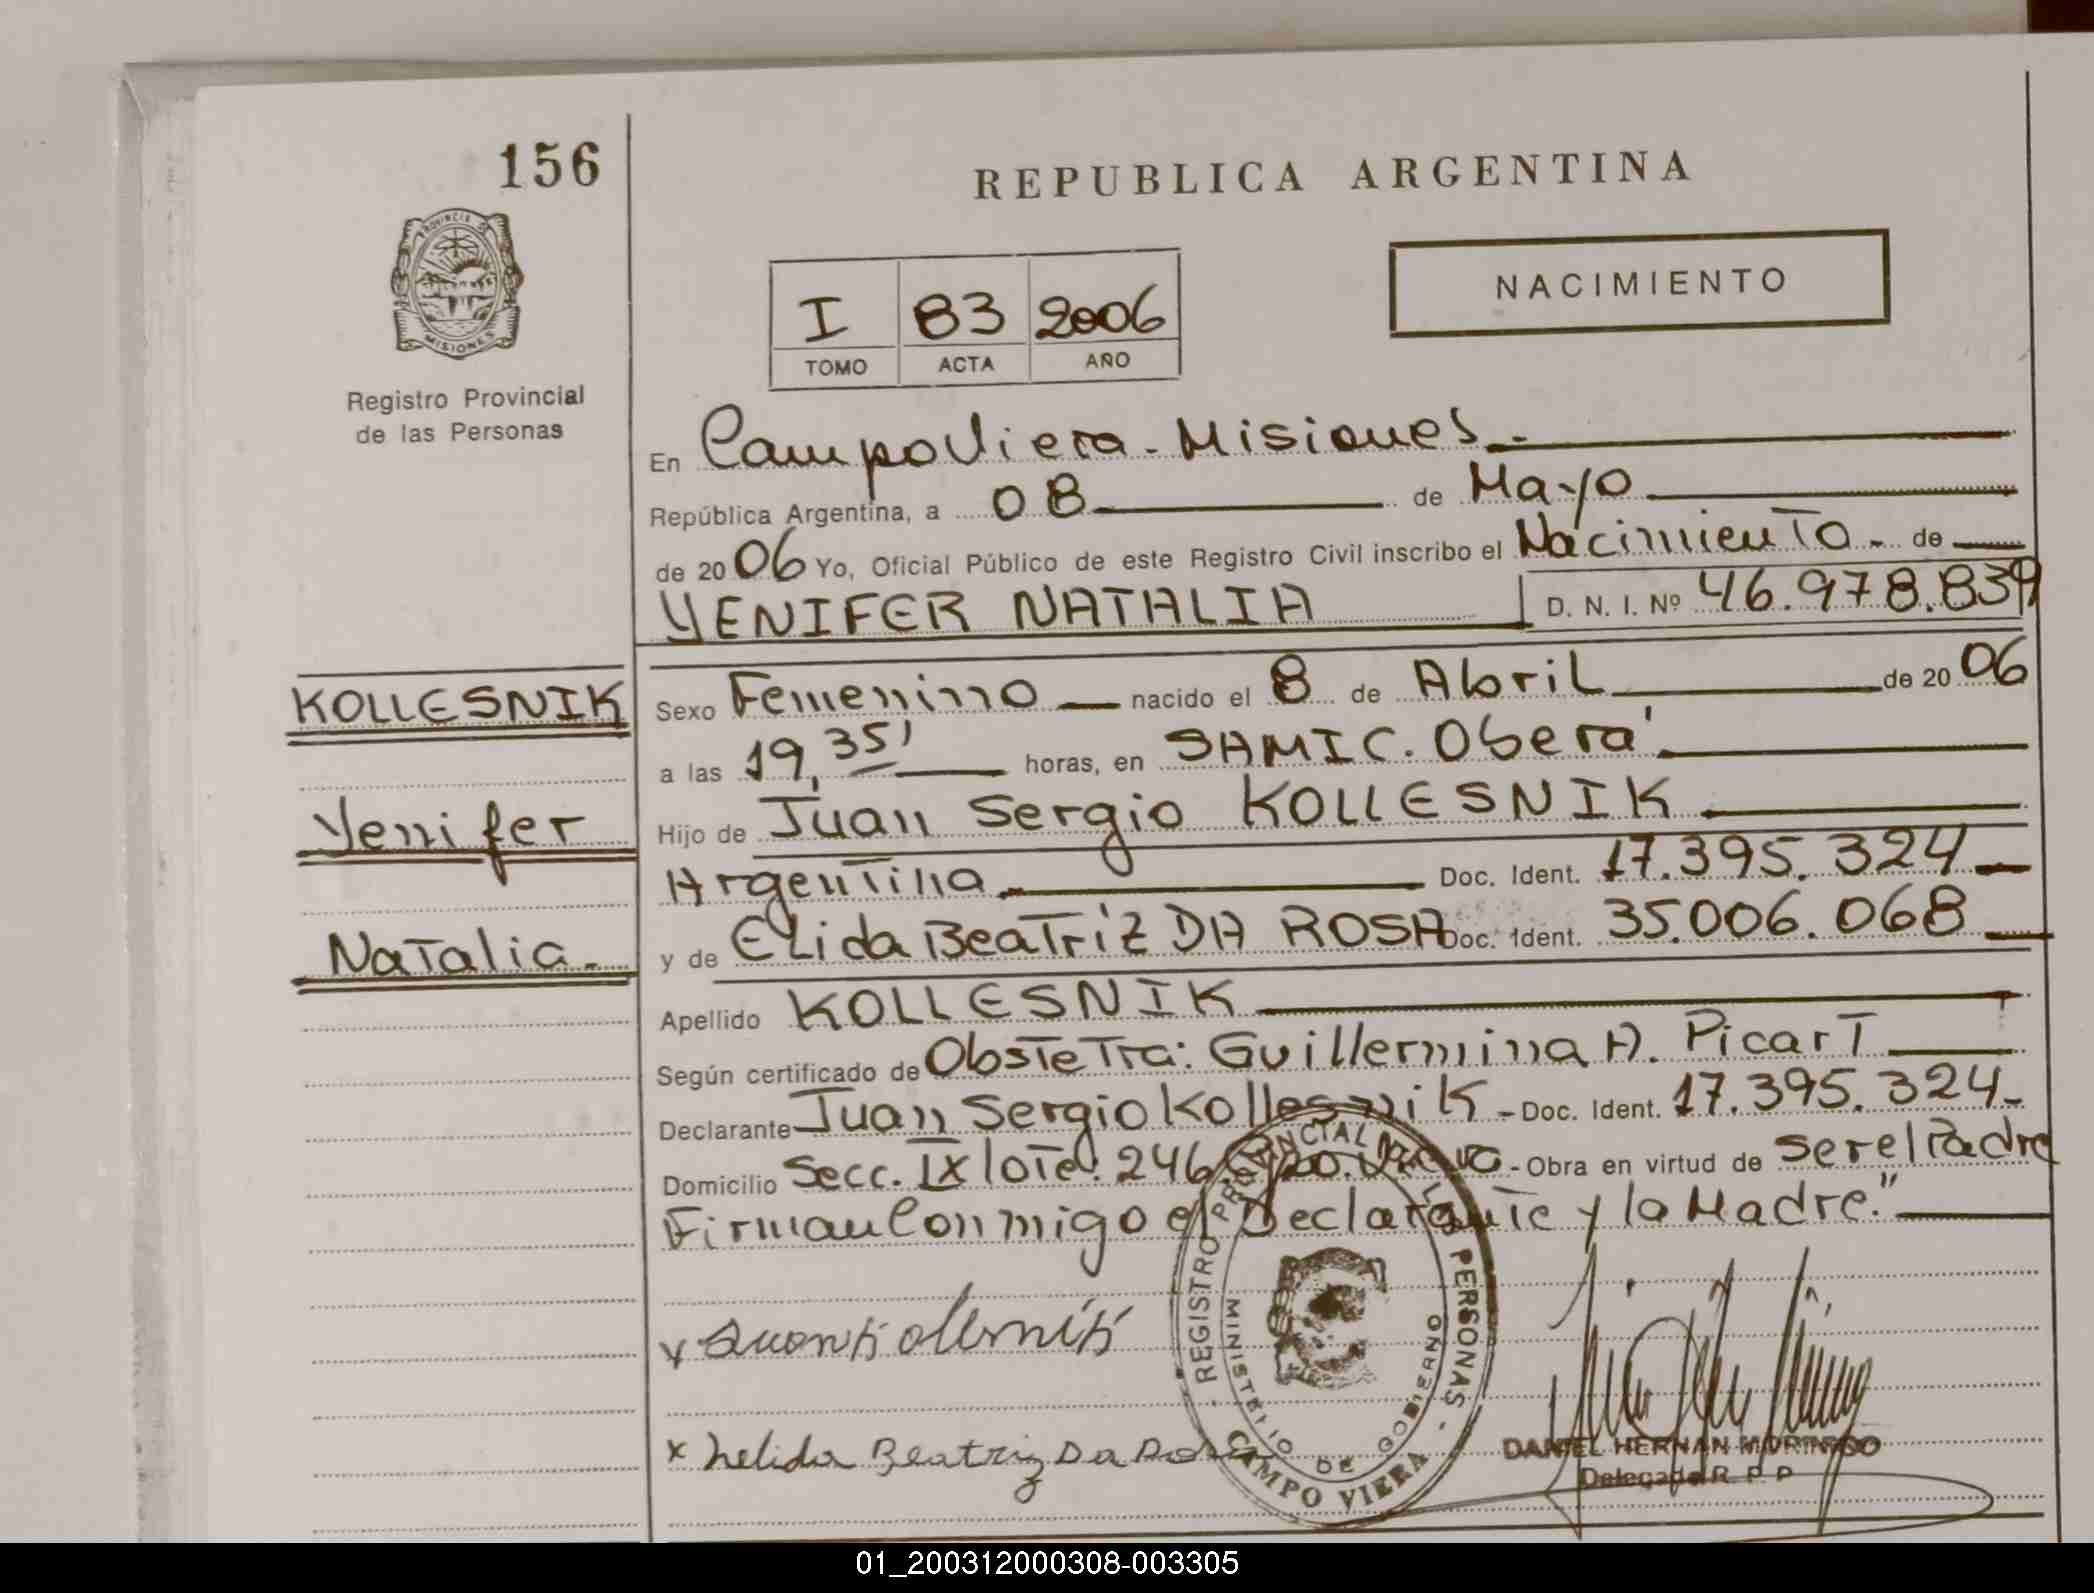 156
REPUBLICA ARGENTINA
PROVINCIA DE
MISIONES
Registro Provincial
de las Personas
I 83 2006
TOMO ACTA AÑO
NACIMIENTO
En Campo Viera - Misiones.-
República Argentina, a 08 de Mayo
de 2006 Yo, Oficial Público de este Registro Civil inscribo el Nacimiento.- de
YENIFER NATALIA D. N. I. Nº 46.978.839
KOLLESNIK
Yenifer
Natalia.-
Sexo Femenino nacido el 8 de Abril de 2006
a las 19,35' horas, en SAMIC. Oberá
Hijo de Juan Sergio KOLLESNIK
Argentina Doc. Ident. 17.395.324
y de Elida Beatriz DA ROSA Doc. Ident. 35.006.068
Apellido KOLLESNIK
Según certificado de Obstetra: Guillermina A. Picart
Declarante Juan Sergio Kollesnik - Doc. Ident. 17.395.324-
Domicilio Secc. IX lote: 246 - Obra en virtud de ser el Padre
Firman Conmigo el Declarante y la Madre."
REGISTRO PROVINCIAL DE LAS PERSONAS
MINISTERIO DE GOBIERNO
CAMPO VIERA
x
x Nelida Beatriz Da Rosa
DANIEL HERNAN
Delegado R. P. P
01_200312000308-003305